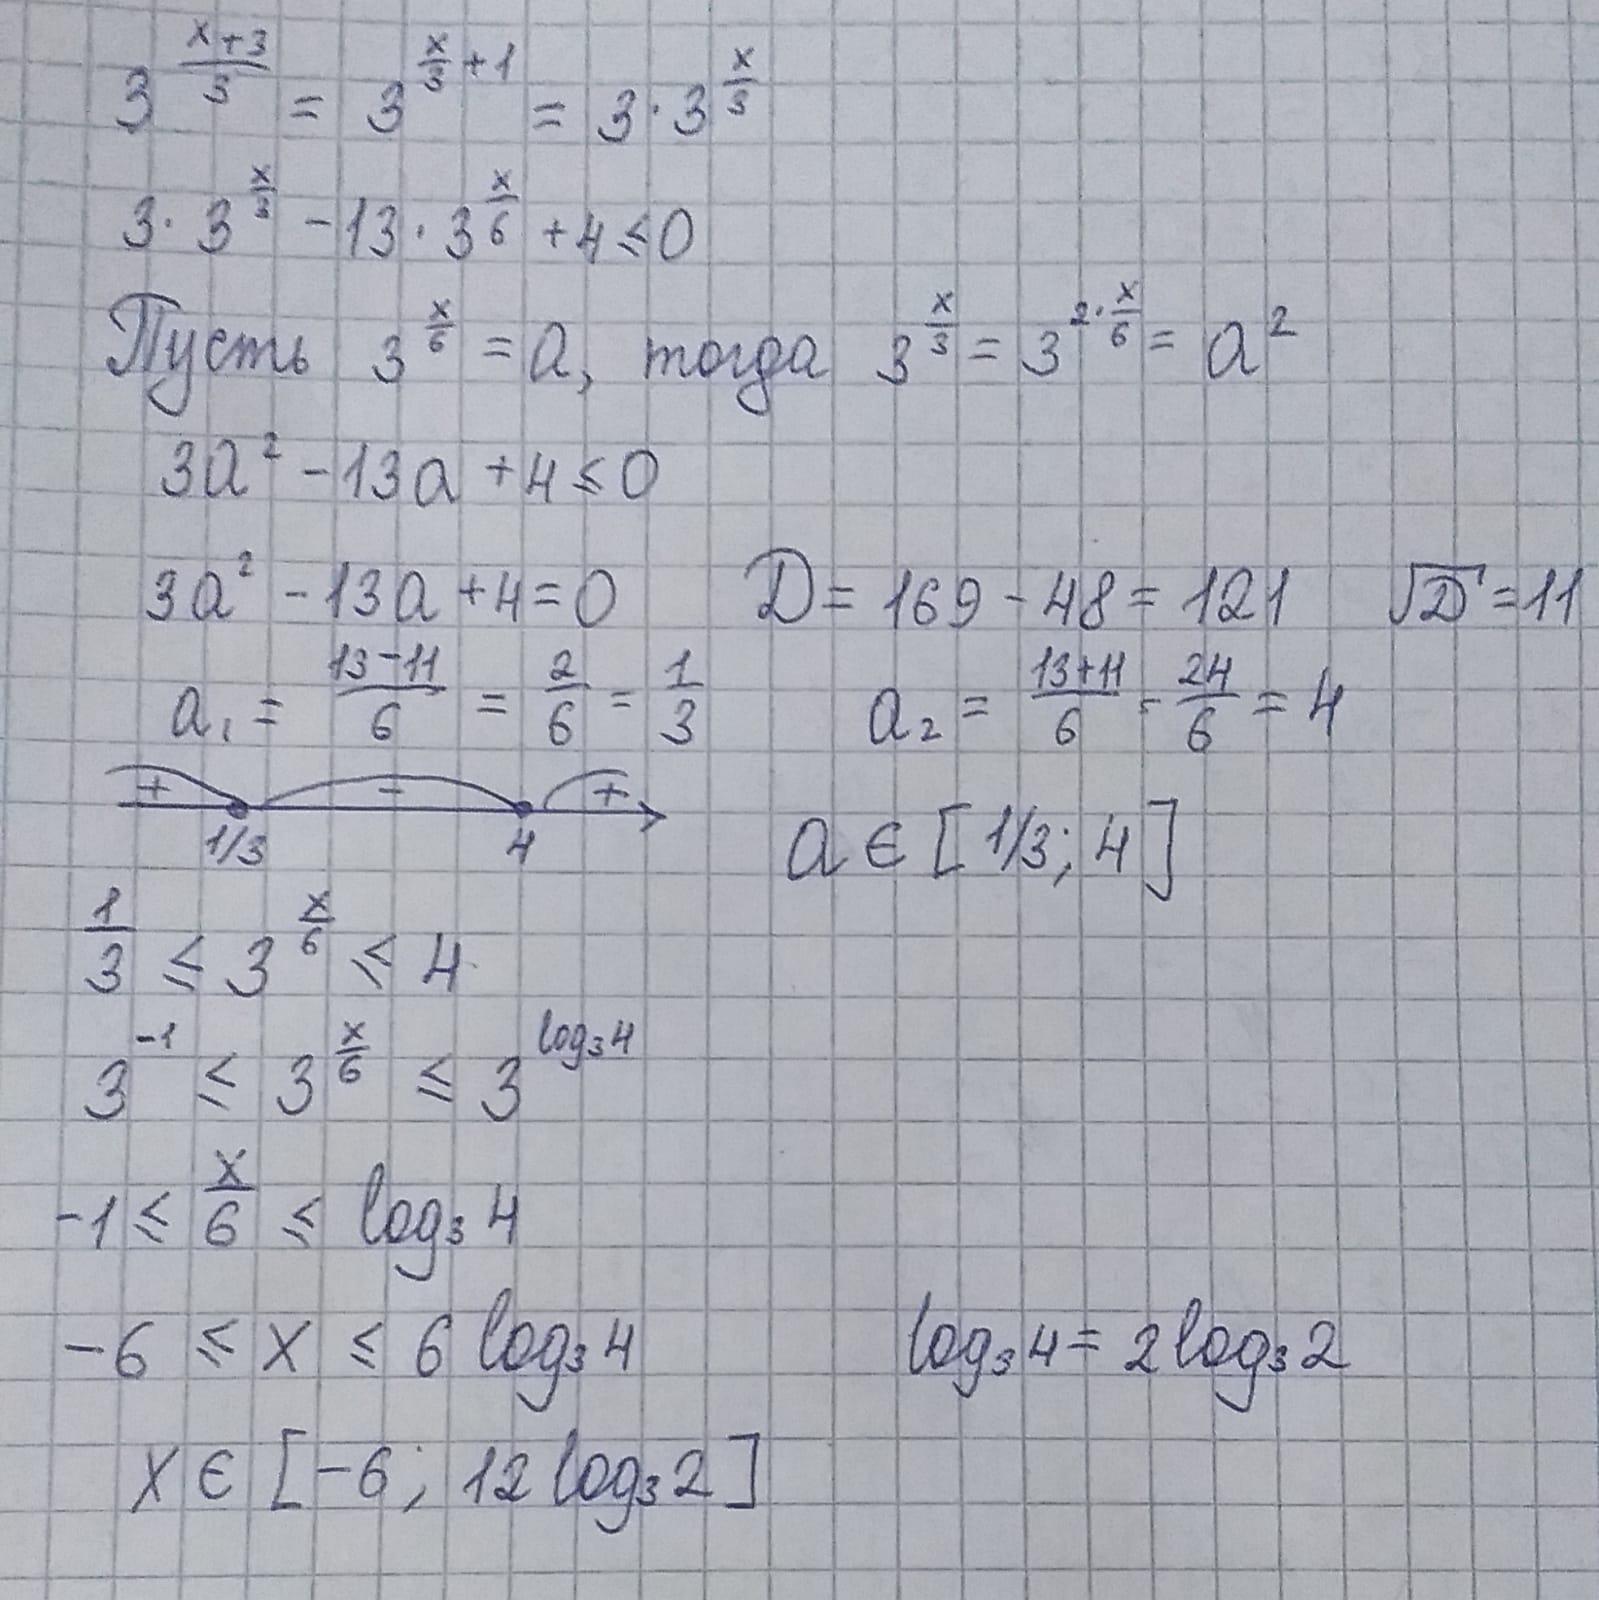 3^((x+3)/3) = 3^(x/3 + 1) = 3 · 3^(x/3)
3 · 3^(x/3) - 13 · 3^(x/6) + 4 ≤ 0
Пусть 3^(x/6) = a, тогда 3^(x/3) = 3^(2·x/6) = a²
3a² - 13a + 4 ≤ 0
3a² - 13a + 4 = 0 D = 169 - 48 = 121 √D = 11
a₁ = (13-11)/6 = 2/6 = 1/3 a₂ = (13+11)/6 = 24/6 = 4
+ - +
1/3 4 a ∈ [1/3; 4]
1/3 ≤ 3^(x/6) ≤ 4
3^(-1) ≤ 3^(x/6) ≤ 3^(log₃4)
-1 ≤ x/6 ≤ log₃4
-6 ≤ x ≤ 6 log₃4 log₃4 = 2log₃2
x ∈ [-6; 12 log₃2]